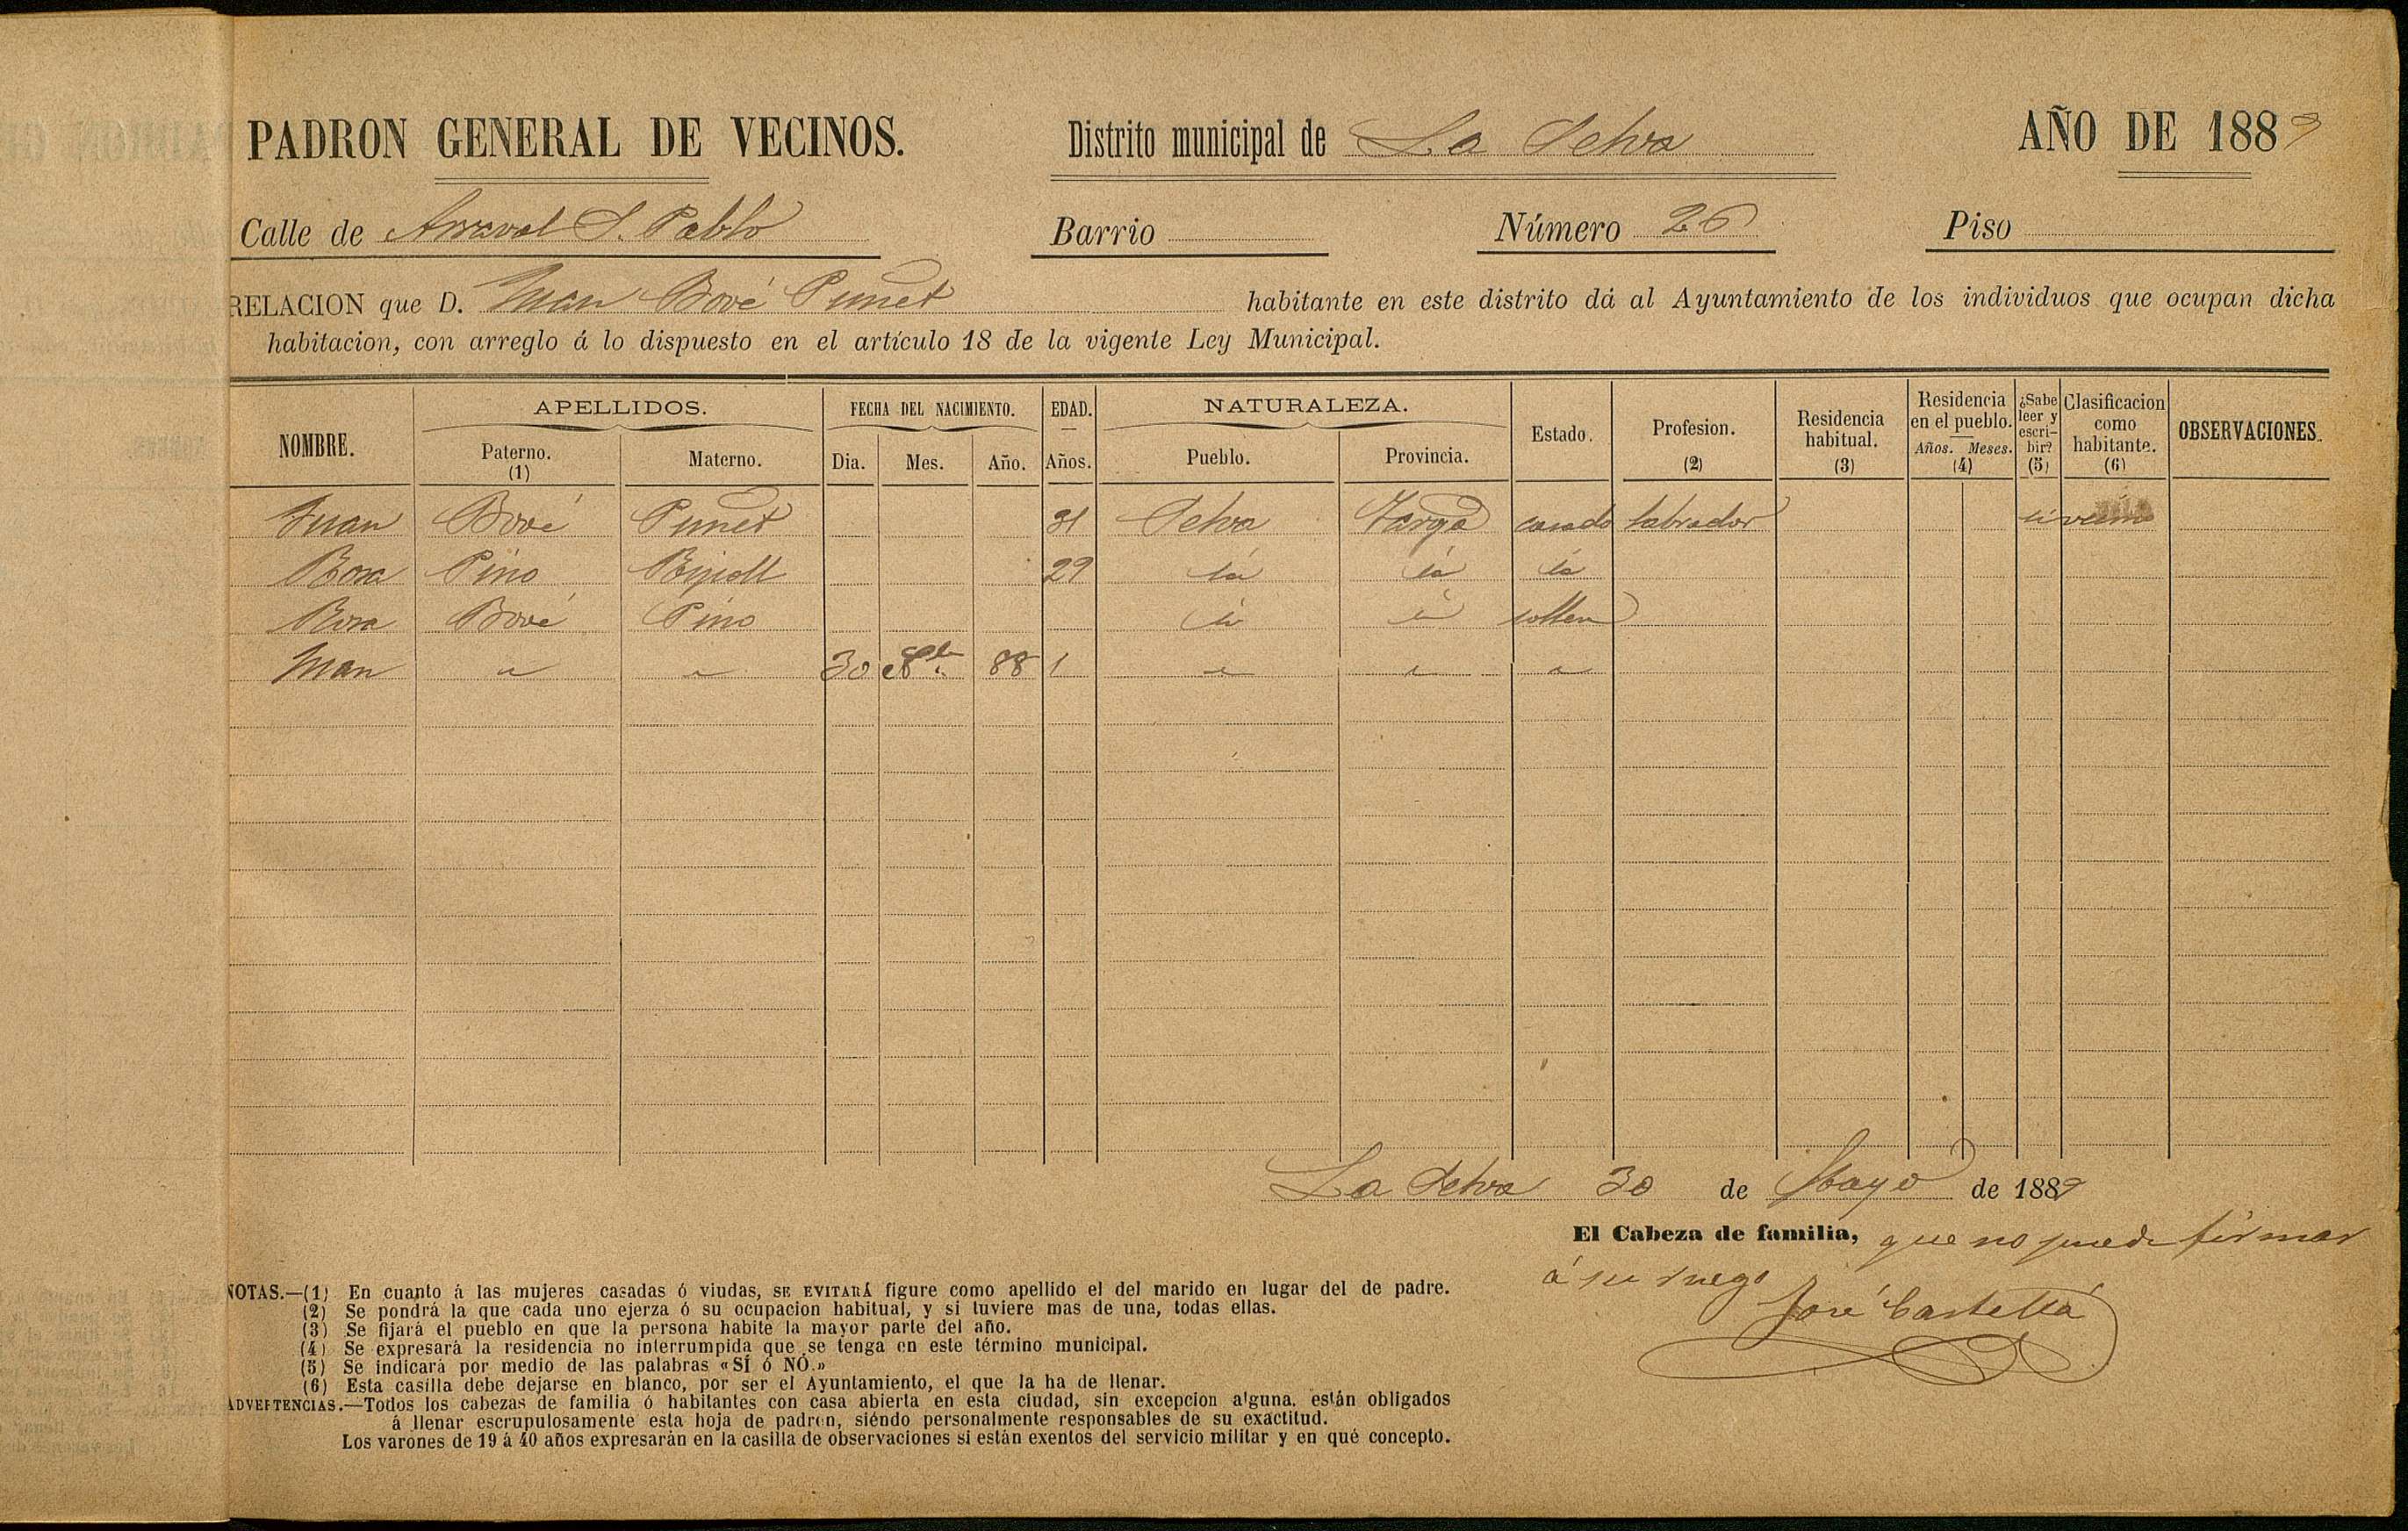 PADRON GENERAL DE VECINOS. Distrito municipal de La Selva AÑO DE 1889
Calle de Arraval S. Pablo Barrio Número 26 Piso
RELACION que D. Juan Bové Punet habitante en este distrito dá al Ayuntamiento de los individuos que ocupan dicha
habitacion, con arreglo á lo dispuesto en el artículo 18 de la vigente Ley Municipal.
NOMBRE. APELLIDOS. Paterno. (1) Materno. FECHA DEL NACIMIENTO. Dia. Mes. Año. EDAD. Años. NATURALEZA. Pueblo. Provincia. Estado. Profesion. (2) Residencia habitual. (3) Residencia en el pueblo. Años. Meses. (4) ¿Sabe leer y escribir? (5) Clasificacion como habitante. (6) OBSERVACIONES.
Juan Bové Punet 31 Selva Targª casado labrador si vecino
Rosa Pino 29 id id id
Rosa Bové Pino id id solter
Juan " " 30 8bre 88 1 " " "
La Selva 30 de Mayo de 1889
El Cabeza de familia, que no puede firmar
á su ruego
José Castellá
NOTAS.—(1) En cuanto á las mujeres casadas ó viudas, SE EVITARÁ figure como apellido el del marido en lugar del de padre.
(2) Se pondrá la que cada uno ejerza ó su ocupacion habitual, y si tuviere mas de una, todas ellas.
(3) Se fijará el pueblo en que la persona habite la mayor parte del año.
(4) Se expresará la residencia no interrumpida que se tenga en este término municipal.
(5) Se indicará por medio de las palabras «SÍ ó NÓ.»
(6) Esta casilla debe dejarse en blanco, por ser el Ayuntamiento, el que la ha de llenar.
ADVERTENCIAS.—Todos los cabezas de familia ó habitantes con casa abierta en esta ciudad, sin excepcion alguna. están obligados
á llenar escrupulosamente esta hoja de padron, siéndo personalmente responsables de su exactitud.
Los varones de 19 á 40 años expresarán en la casilla de observaciones si están exentos del servicio militar y en qué concepto.